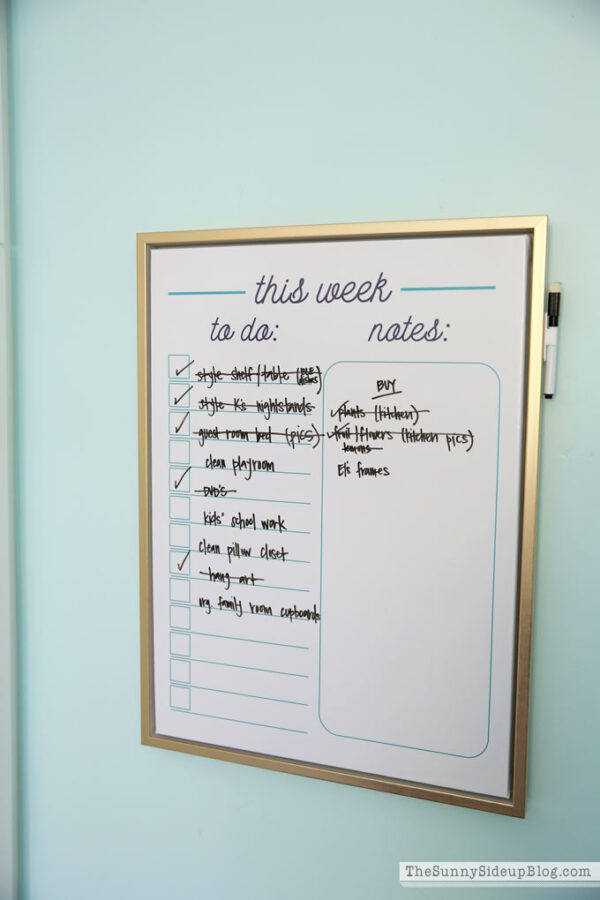 this week
to do:
style shelf/table (BLE dishes)
style K's nightstands
guest room bed (pics)
clean playroom
DVD'S
kids' school work
clean pillow closet
hang art
org. family room cupboards
notes:
BUY
plants (kitchen)
fruit/flowers (kitchen pics)
lemons
Eli's frames
TheSunnySideupBlog.com